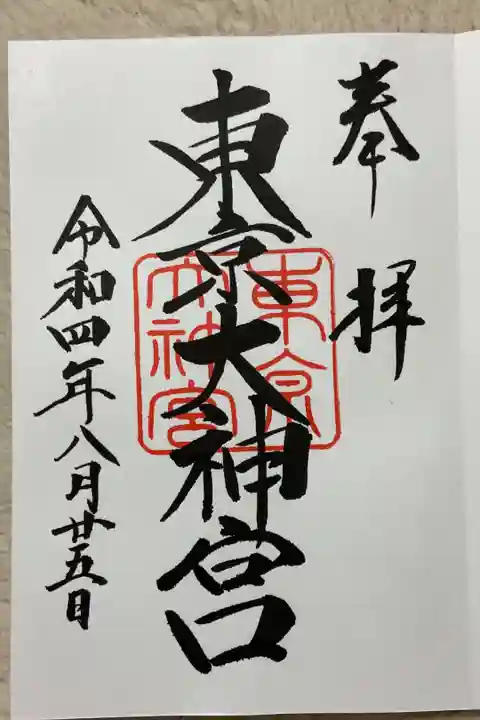 奉拝
東京大神宮
東京
大神宮
令和四年八月廿五日